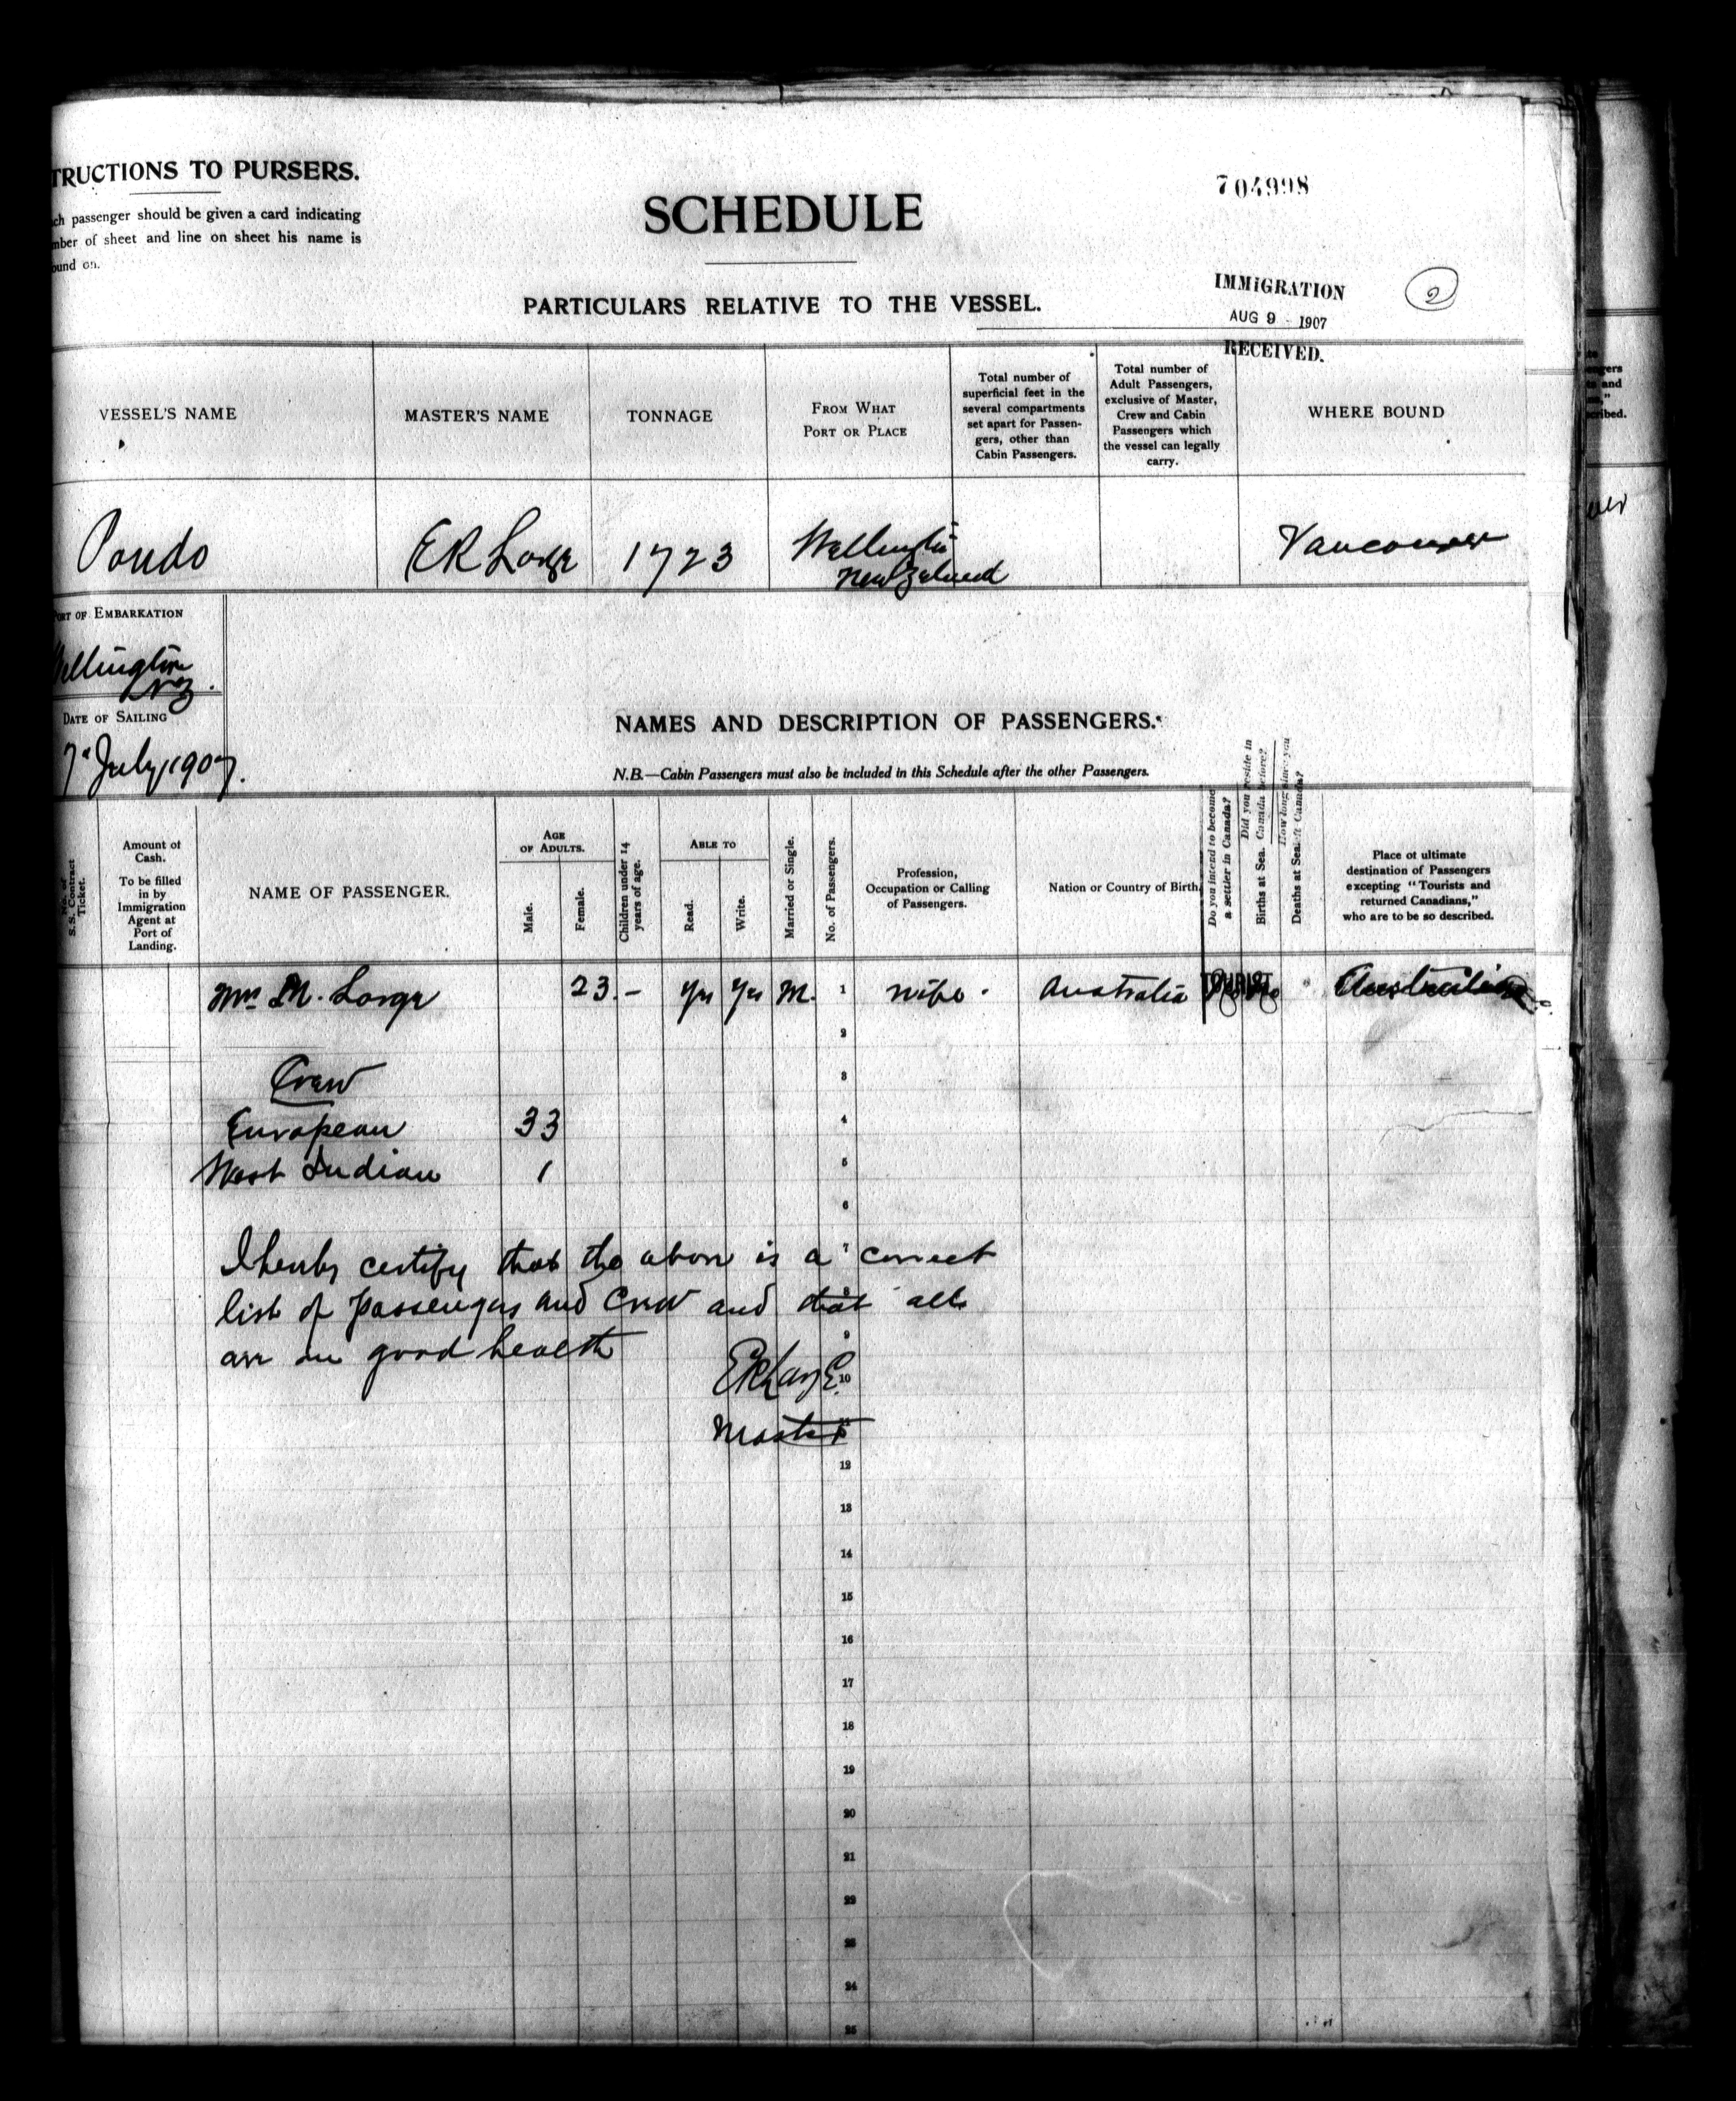 TRUCTIONS TO PURSERS.
ch passenger should be given a card indicating
mber of sheet and line on sheet his name is
ound on.
SCHEDULE
704998
PARTICULARS RELATIVE TO THE VESSEL.
IMMIGRATION
AUG 9 - 1907
RECEIVED.
2
VESSEL'S NAME
MASTER'S NAME
TONNAGE
FROM WHAT
PORT OR PLACE
Total number of
superficial feet in the
several compartments
set apart for Passen-
gers, other than
Cabin Passengers.
Total number of
Adult Passengers,
exclusive of Master,
Crew and Cabin
Passengers which
the vessel can legally
carry.
WHERE BOUND
Pondo
E R Large
1723
Wellington
New Zealand
Vancouver
PORT OF EMBARKATION
Wellington
NZ.
DATE OF SAILING
7 July, 1907.
NAMES AND DESCRIPTION OF PASSENGERS.
N.B.—Cabin Passengers must also be included in this Schedule after the other Passengers.
No. of
S.S. Contract
Ticket.
Amount of
Cash.
To be filled
in by
Immigration
Agent at
Port of
Landing.
NAME OF PASSENGER.
AGE
OF ADULTS.
Male.
Female.
Children under 14
years of age.
ABLE TO
Read.
Write.
Married or Single.
No. of Passengers.
Profession,
Occupation or Calling
of Passengers.
Nation or Country of Birth.
Do you intend to become
a settler in Canada?
Did you reside in
Canada before?
Births at Sea.
How long since you
left Canada?
Deaths at Sea.
Place of ultimate
destination of Passengers
excepting "Tourists and
returned Canadians,"
who are to be so described.
Mrs M. Large 23 - Yes Yes M. 1 wife. Australia TOURIST Australia
2
Crew 3
European 33 4
West Indian 1 5
6
I hereby certify that the above is a 7 correct
list of passengers and Crew and that 8 all
are in good health 9
E R Large 10
Master 11
12
13
14
15
16
17
18
19
20
21
22
23
24
25